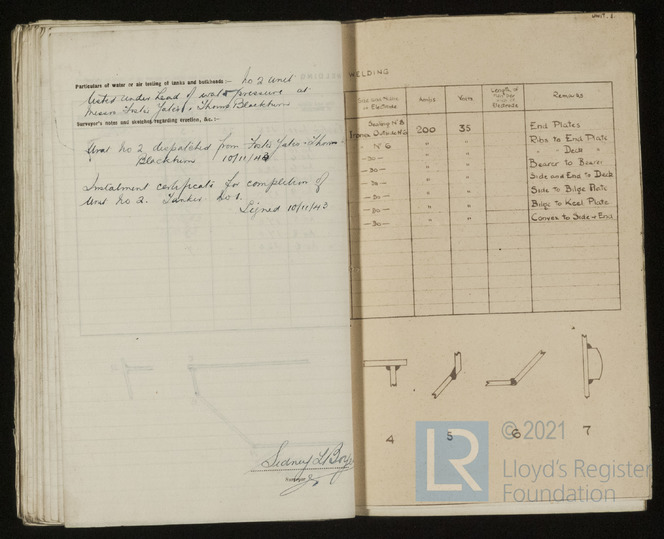 Particulars of water or air testing of tanks and bulkheads :— No 2 Unit
tested under head of water pressure at
Messrs Foster Yates & Thoms Blackburn
Surveyor's notes and sketches regarding erection, &c. :—
Unit No 2 dispatched from Foster Yates & Thoms
Blackburn 10/11/43
Instalment certificate for completion of
Unit No 2. Tanker No 1.
Signed 10/11/43
Sidney L
Surveyor
Unit. 1.
WELDING
Size and Make of Electrode
Amps
Volts
Length of Electrode
Remarks
Sealing No 8
Outside No 6 200 35 End Plates
" No 6 " " Ribs to End Plate
— Do — " " " " Deck "
— Do — " " Bearer to Bearer
— Do — " " Side and End to Deck
— Do — " " Side to Bilge Plate
— Do — " " Bilge to Keel Plate
— Do — " " to Side & End
4 5 6 7
LR
© 2021
Lloyd's Register
Foundation